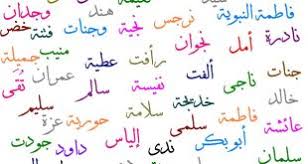 فاطمة النبوية نرجس هند وجدان
نادرة أمل نجوان وجنات فضة خضر
ناجي ألفت رأفت عطية منيب جميلة
حنان نفيسة سالم عمران تقى
عائشة فاطمة خديجة سلامة خالد
سلمى حورية عزة سليم
أبو بكر ندى إلياس داود جودت